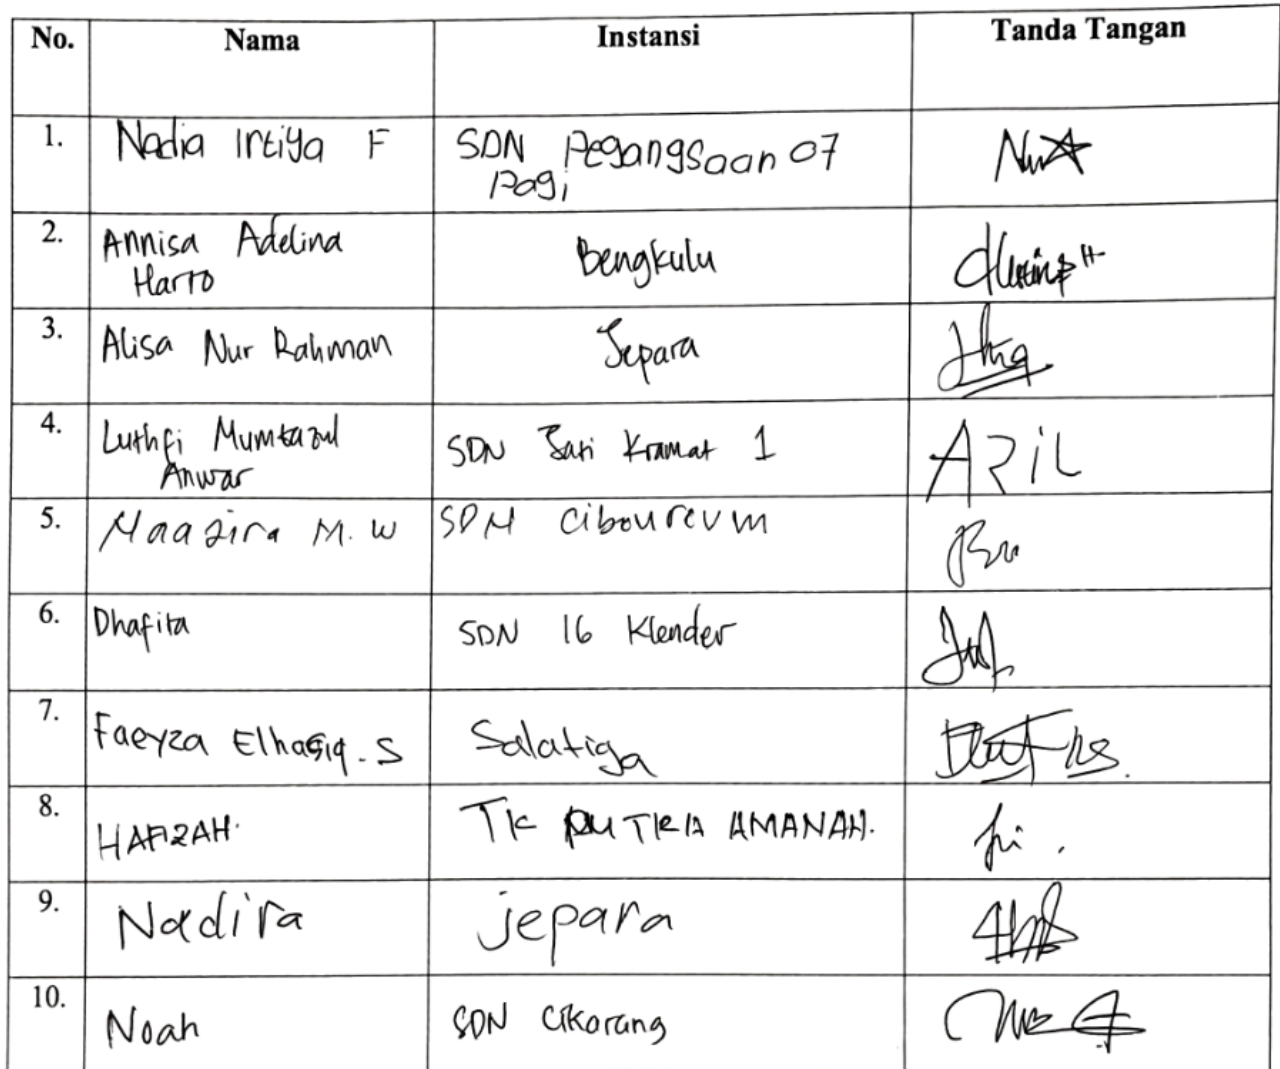 No. Nama Instansi Tanda Tangan
1. Nadia Irtiya F SDN Pegangsaan 07
Pagi
2. Annisa Adelina Bengkulu
Harto
3. Alisa Nur Rahman Jepara
4. Luthfi Mumtazul SDN Jati Kramat 1 AZiL
Anwar
5. Naazira M. W SDN Ciboureum
6. Dhafita SDN 16 Klender
7. Faeyza Elhasiq. S Salatiga
8. HAFIZAH. TK PUTRA AMANAH.
9. Nadira jepara
10. Noah SDN Cikarang